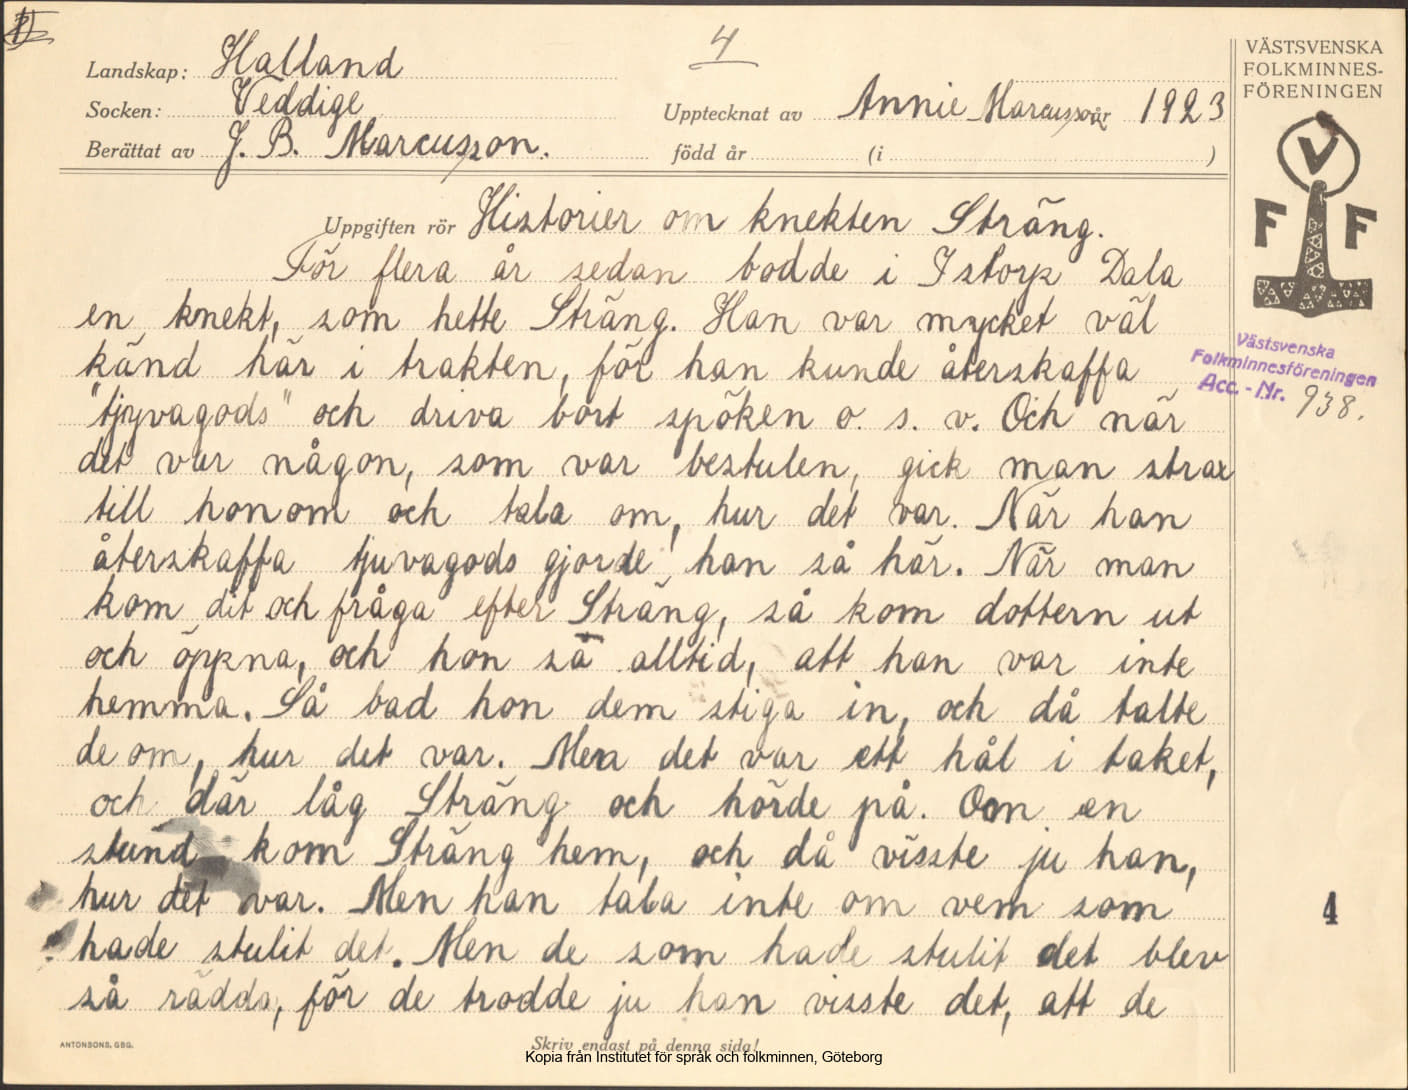 4
Landskap: Halland
Socken: Veddige
Berättat av J. B. Marcusson.
Upptecknat av Annie Marcusson år 1923
född år (i )
Uppgiften rör Historier om knekten Sträng.
För flera år sedan bodde i Istorp Dala
en knekt, som hette Sträng. Han var mycket väl
känd här i trakten, för han kunde återskaffa
"tjyvagods" och driva bort spöken o. s. v. Och när
det var någon, som var bestulen, gick man strax
till honom och tala om, hur det var. När han
återskaffa tjuvagods gjorde han så här. När man
kom dit och fråga efter Sträng, så kom dottern ut
och öppna, och hon sa alltid, att han var inte
hemma. Så bad hon dem stiga in, och då talte
de om, hur det var. Men det var ett hål i taket,
och där låg Sträng och hörde på. Om en
stund kom Sträng hem, och då visste ju han,
hur det var. Men han tala inte om vem som
hade stulit det. Men de som hade stulit det blev
så rädda, för de trodde ju han visste det, att de
ANTONSONS, GBG.
Skriv endast på denna sida!
Kopia från Institutet för språk och folkminnen, Göteborg
VÄSTSVENSKA
FOLKMINNES-
FÖRENINGEN
V
F F
Västsvenska
Folkminnesföreningen
Acc. - Nr. 938.
4